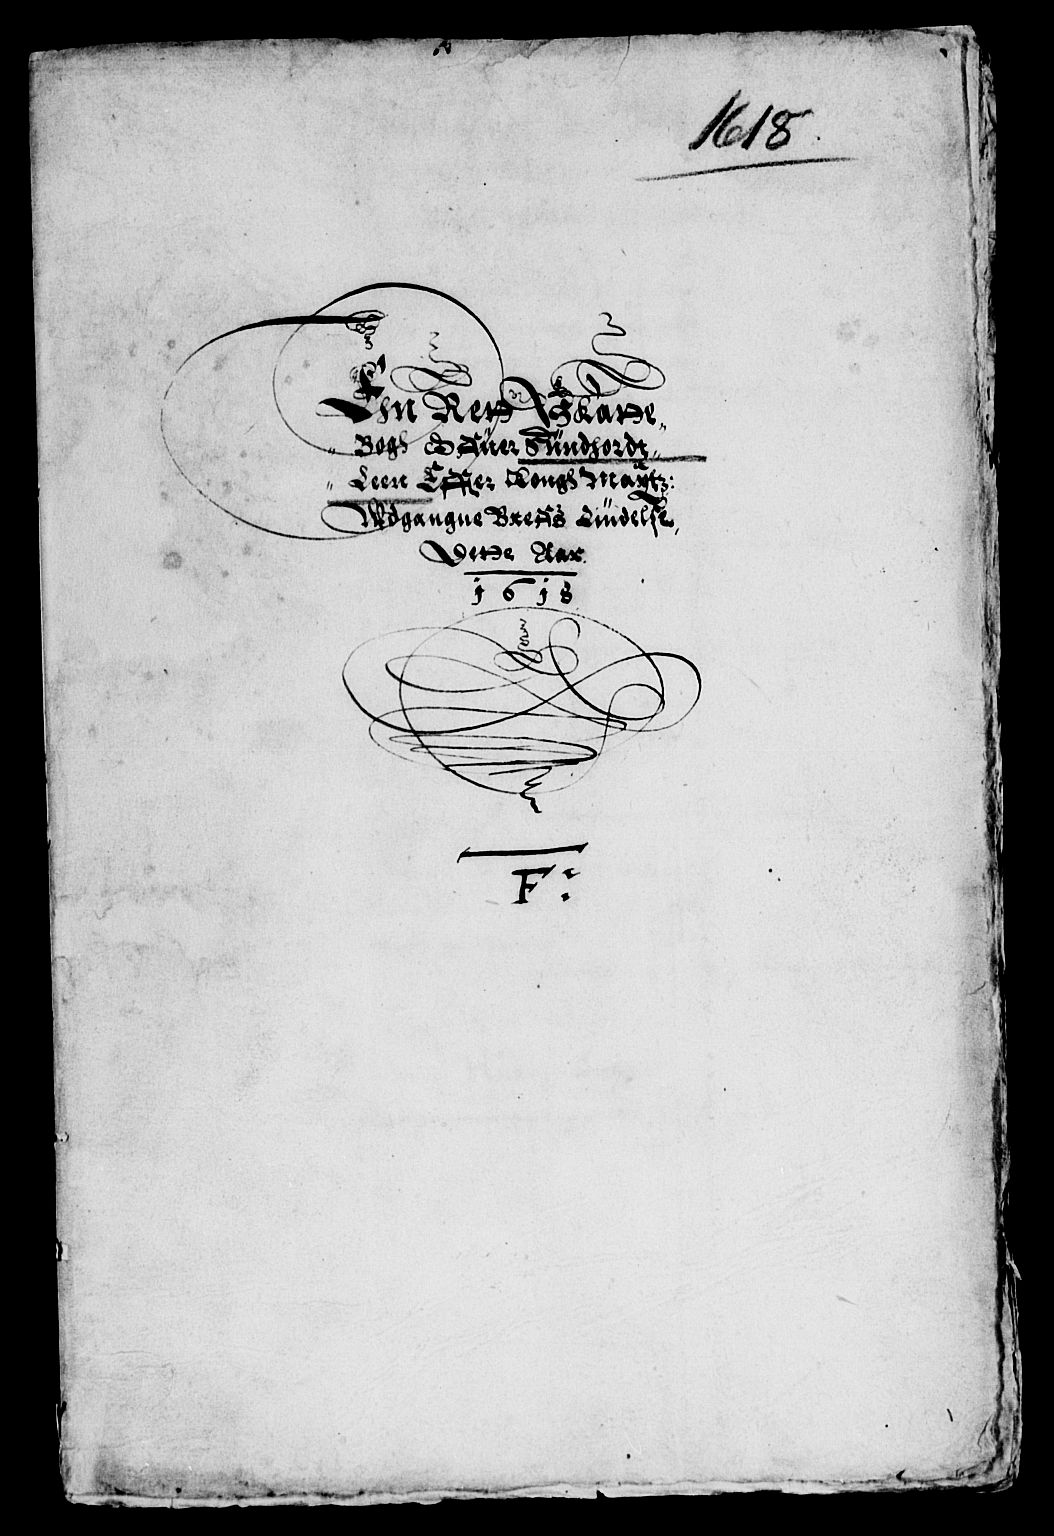 1618
Ehn Rett Skatte,,
,, Bogh Offüer Sündhordt,,
,, Leen Effter Kongh Maytz:
Wdgangne Breffs Liudelse,,
Dette Aar.
1618
F: